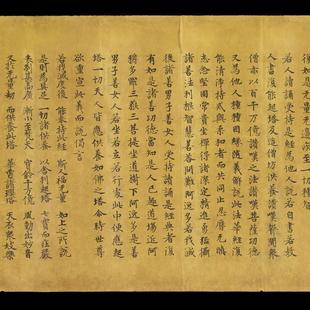 人功德亦復如是無量無邊疾至一切種智
若人讀誦受持是經為他人說若自書若教
人書復能起塔及造僧坊供養讚歎聲聞眾
僧亦以百千萬億讚歎之法讚歎菩薩功德
又為他人種種因緣隨義解說此法華經復
能清淨持戒與柔和者而共同止忍辱無瞋
志念堅固常貴坐禪得諸深定精進勇猛攝
諸善法利根智慧善答問難阿逸多若我滅
後諸善男子善女人受持讀誦是經典者復
有如是諸善功德當知是人已趣道場近阿
耨多羅三藐三菩提坐道樹下阿逸多是善
男子善女人若坐若立若行處此中便應起
塔一切天人皆應供養如佛之塔爾時世尊
欲重宣此義而說偈言
若我滅度後 能奉持此經 斯人福無量 如上之所說
是則為具足 一切諸供養 以舍利起塔 七寶而莊嚴
表刹甚高廣 漸小至梵天 寶鈴千万億 風動出妙音
又於无量劫 而供養此塔 華香諸瓔珞 天衣眾妓樂